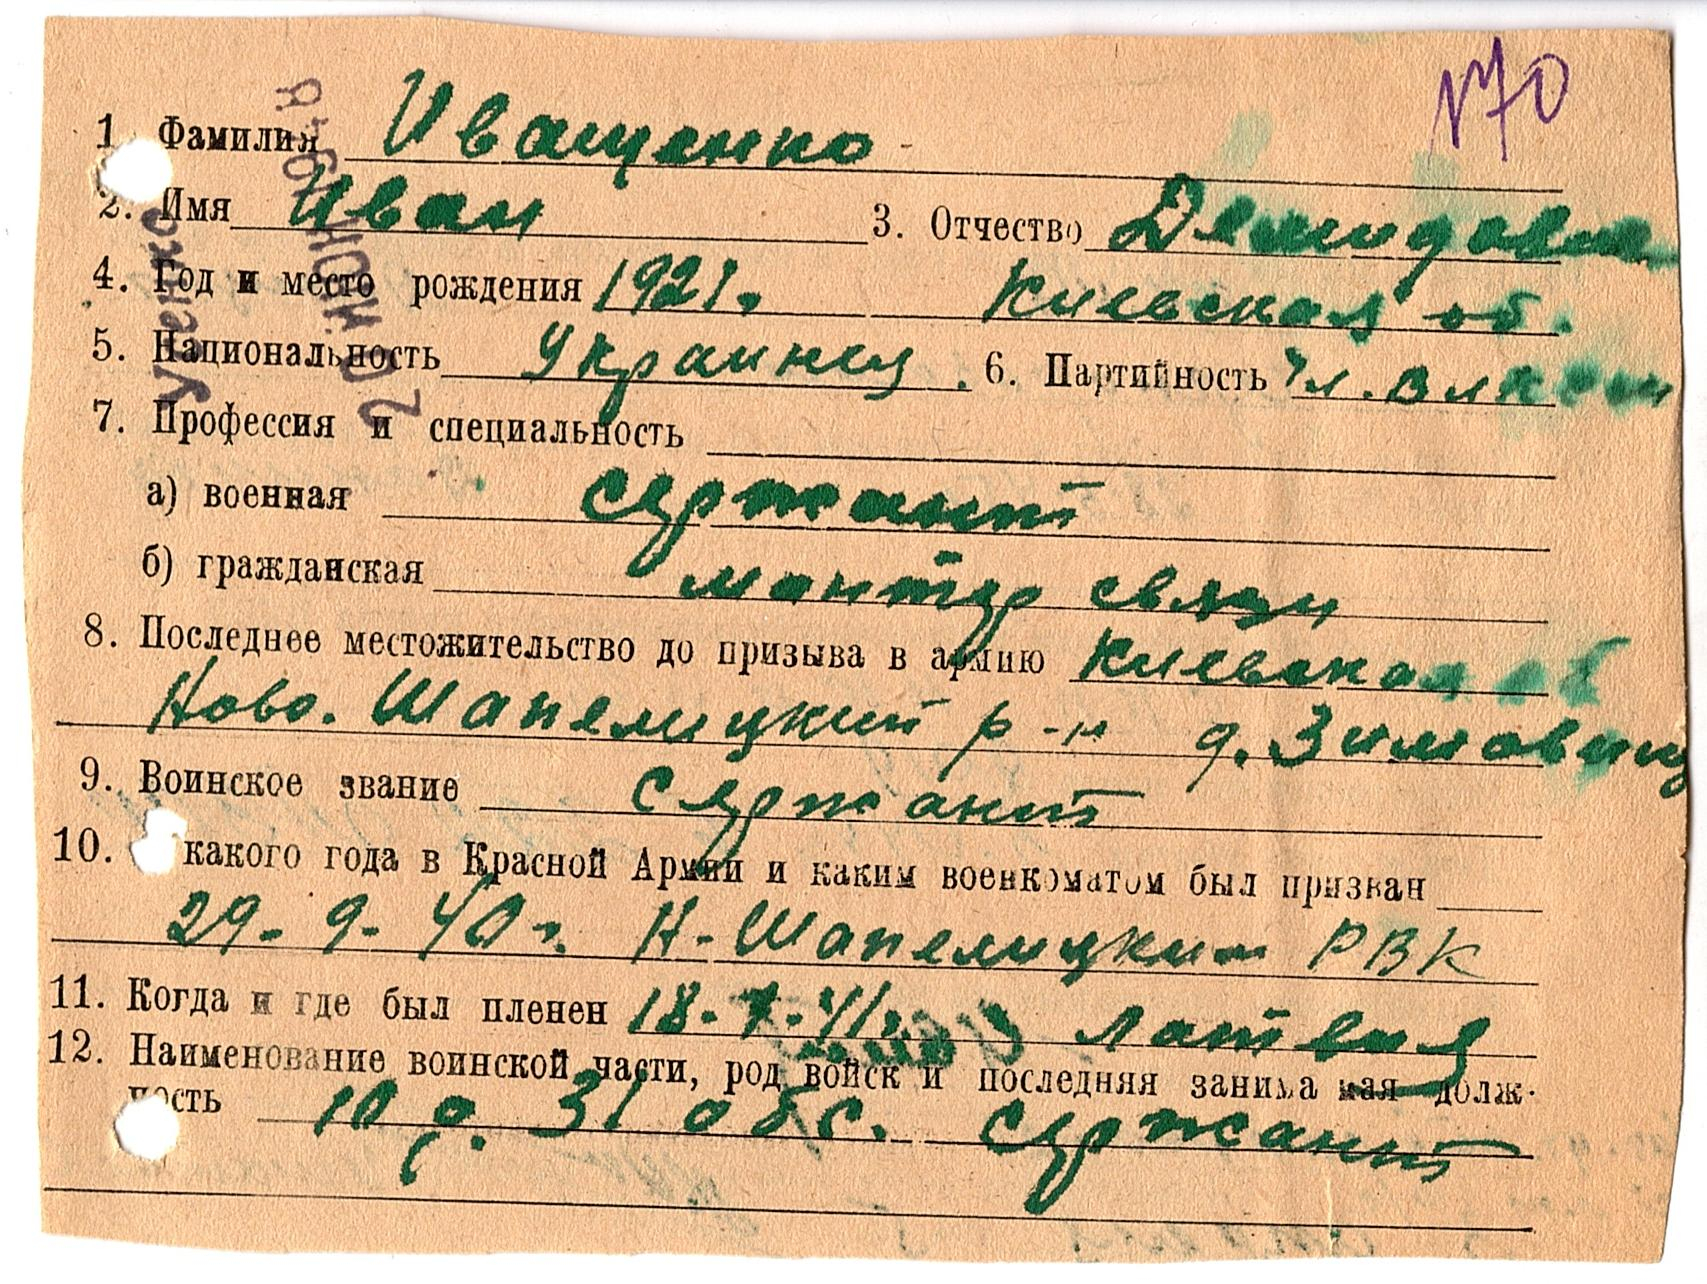 №70
1. Фамилия Иващенко
2. Имя Иван 3. Отчество Демидович
4. Год и место рождения 1921г. Киевская об.
5. Национальность Украинец. 6. Партийность чл. ВЛКСМ
7. Профессия и специальность
а) военная сержант
б) гражданская монтер связи
8. Последнее местожительство до призыва в армию Киевская об
Ново. Шапелицкий р-н д. Зимовищ
9. Воинское звание сержант
10. какого года в Красной Армии и каким военкоматом был призван
29-9-40г. Н-Шапелицким РВК
11. Когда и где был пленен 18-7-41г. Латвия
12. Наименование воинской части, род войск и последняя занимаемая долж-
ность 10 д. 31 обс. сержант
Учтено
20 ИЮН 1946